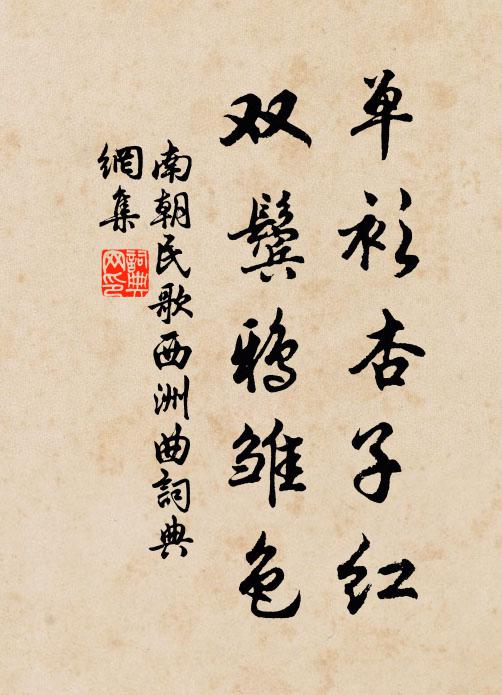 单衫杏子红
双鬓鸦雏色
南朝民歌西洲曲詞典
網集
詞典网印